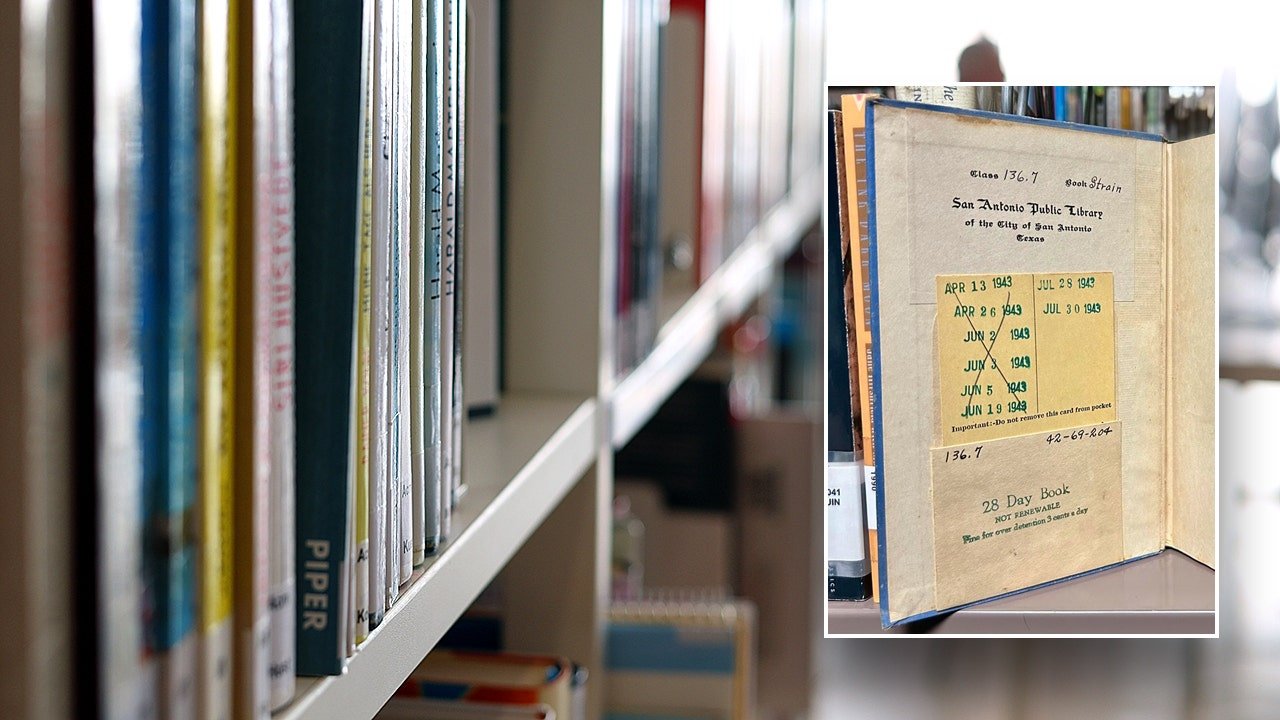 PIPER
HARALD MARTE
Class 136.7 Book Strain
San Antonio Public Library
of the City of San Antonio
Texas
APR 13 1943 JUL 28 1943
APR 26 1943 JUL 30 1943
JUN 2 1943
JUN 3 1943
JUN 5 1943
JUN 19 1943
Important:-Do not remove this card from pocket
42-69-204
136.7
28 Day Book
NOT RENEWABLE
Fine for over detention 3 cents a day
041
UIN